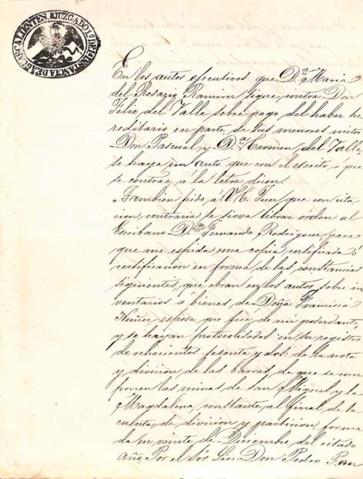 En los autos ejecutivos que D.ª Maria
del Rosario Ramirez sigue, contra Don
Feliz del Valle, sobre pago del haber he
reditario en parte de sus menores nietos
Don Pascual y D.ª Carmen del Valle,
se haya un auto que con el escrito á que
se contrae á la letra dicen
"Tambien pido á V. Juez que con cita
cion contraria se sirva librar orden al
Escribano D.ⁿ Fernando Rodriguez para
que me espida una copia certificada ó
certificacion en forma de las constancias
siguientes, que obran en los autos, sobre in
ventarios á bienes de Doña Francisca
Nuñez, esposa que fué de mi poderdante,
y se hayan protocolisadas en su registro
de ochocientos sesenta y dos: de la nota
y division de las barras, de que se com
ponen las minas de San Miguel y la
Magdalena, constante, al final de la
cuenta de division y particion forma
da en veinte de Diciembre del citado
año, Por el Sór Lic. Don Pedro